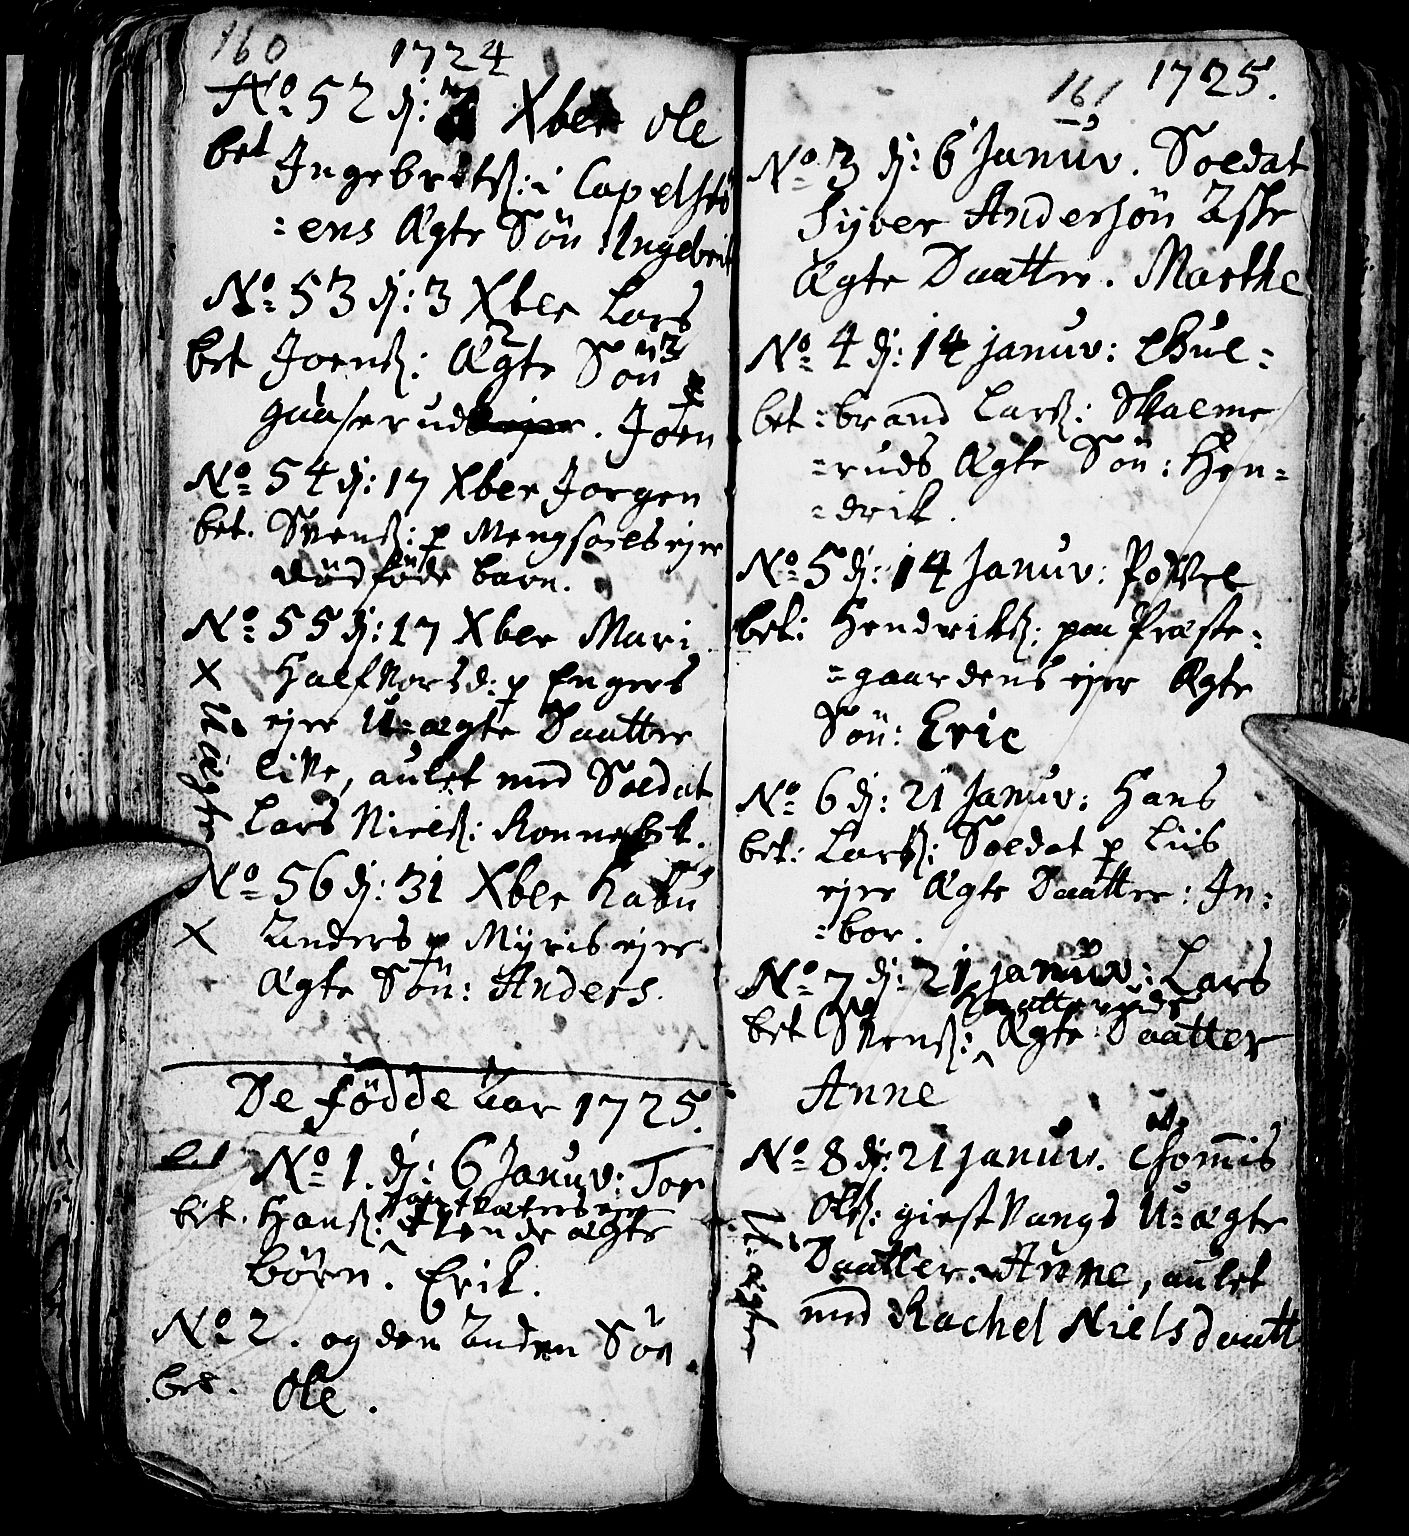 160 1724
No 52 d: 3 Xber Ole
bet Ingebretß: i Capelsto
=ens Ægte Søn Ingebrit
No 53 d: 3 Xber Lars
bet Joenß: Ægte Søn
gaaserud . Joen
No 54 d: 17 Xber Jorgen
bet. Svenß: p Mengsoelsejer
dødføde barn.
No 55 d: 17 Xber Mari
X Halfvorsd: p Engers
ejer U=ægte Daatter
U ægte
live, aulet med Soldat
Lars Nielß: Ronne
No 56 d: 31 Xber
X Anders p Myrisejer
Ægte Søn: Anders.
De fødde Aar 1725.
bet No 1. d: 6 Januv: Tor
bet. Hanß: ægte
børn. Erik.
No 2. og den Anden Søn
bet. Ole.
161 1725.
No 3 d: 6 Januv. Soldat
Syver Andersøn
Ægte Daatter. Marthe
No 4 d: 14 januv: Chul=
bet =brand Larß: Skalme
=ruds Ægte Søn: Hen=
=drik.
No 5 d: 14 Januv: Povel
bet: Hendrikß: paa Præste=
=gaardens ejer Ægte
Søn: Eric
No 6 d: 21 Januv: Hans
bet: Larß: Soldat p Liis
ejer Ægte Daatter: In=
=bor.
No 7 d: 21 januv: Lars
bet Svenß: Ægte Daatter
Anne
No 8 d: 21 januv. Chommis
Olß: giestvangs U=ægte
U ægte
Daatter. Anne, aulet
med Rachel Nielsdaatt